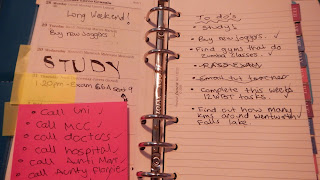 Long Weekend!
Buy new joggers
STUDY
1:20pm - Exam
• Call Uni ✓
• call MCC
• call doctors ✓
• call hospital
• call Aunti Mar
• call Aunty
To do's
• Study!
• Buy new joggers. ✓
• Find gyms that do
Zumba classes.
• PASS EXAM
• Email tut teacher
• Complete this weeks
12WBT tasks
• Find out how many
kms around wentworth
Falls lake